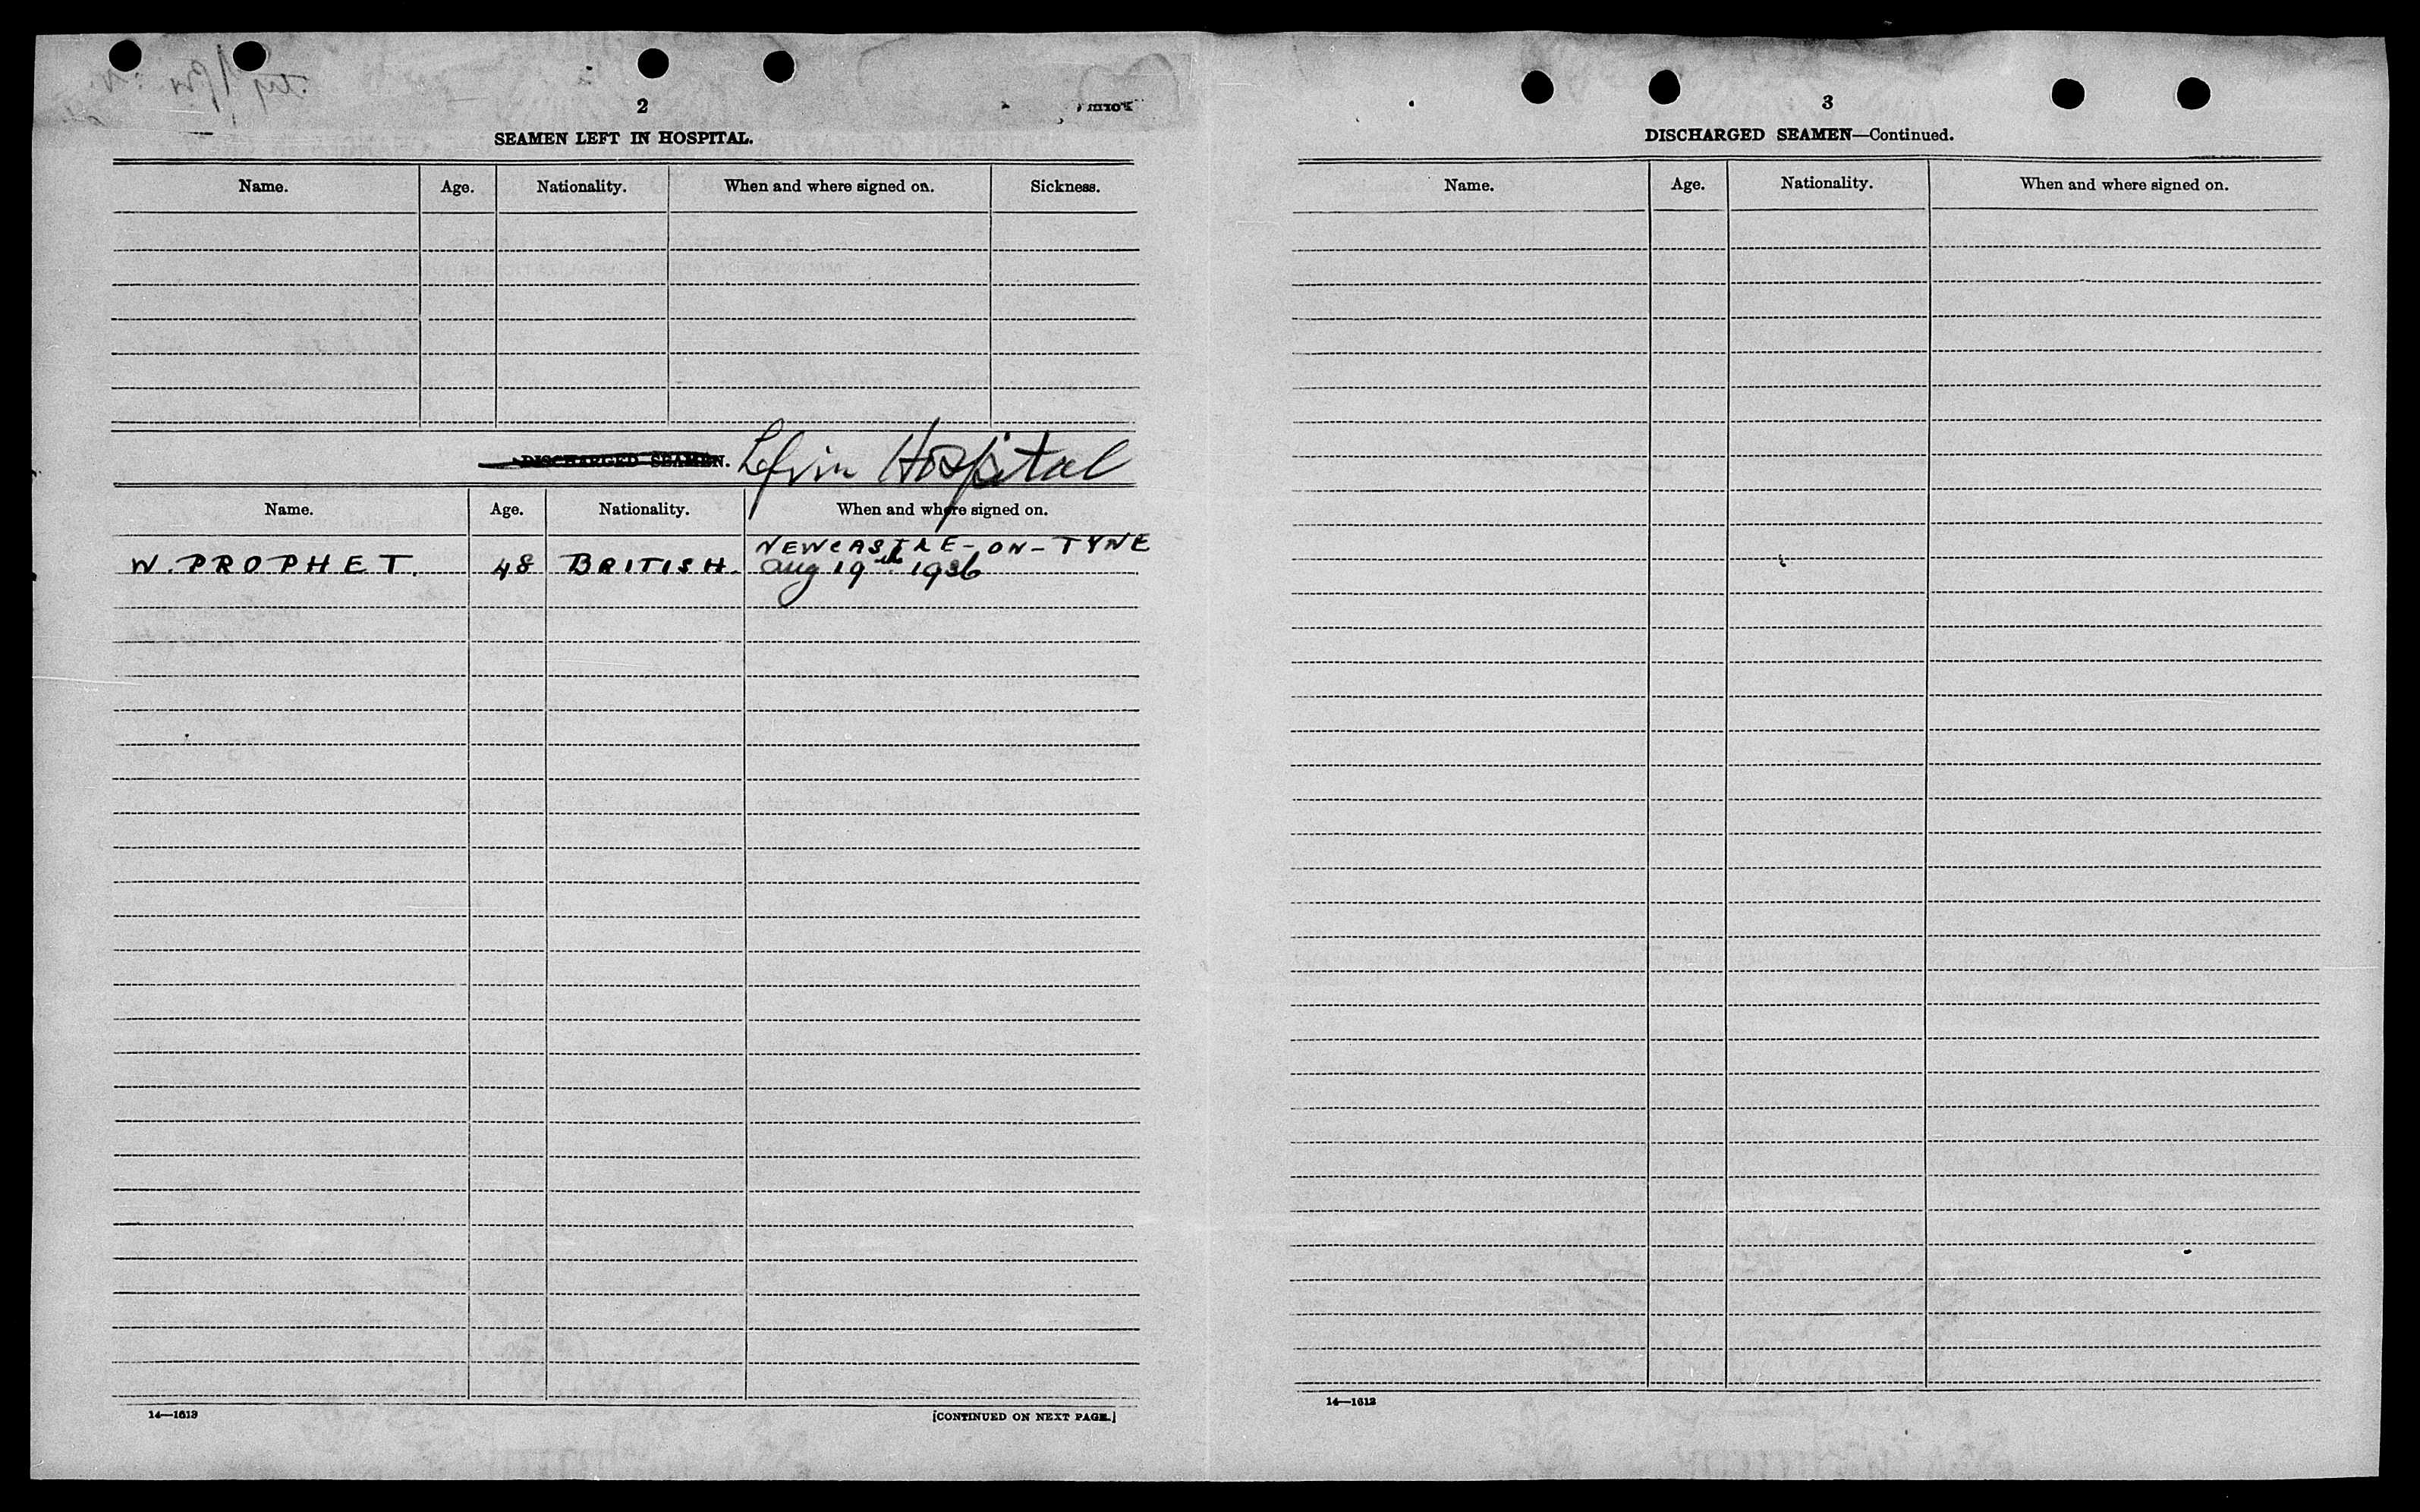 2
SEAMEN LEFT IN HOSPITAL.
Name. Age. Nationality. When and where signed on. Sickness.
DISCHARGED SEAMEN. Hospital
Name. Age. Nationality. When and where signed on.
NEWCASTLE-ON-TYNE
W. PROPHET. 48 BRITISH. Aug 19th 1936
14—1613
[CONTINUED ON NEXT PAGE.]
3
DISCHARGED SEAMEN—Continued.
Name. Age. Nationality. When and where signed on.
14—1613